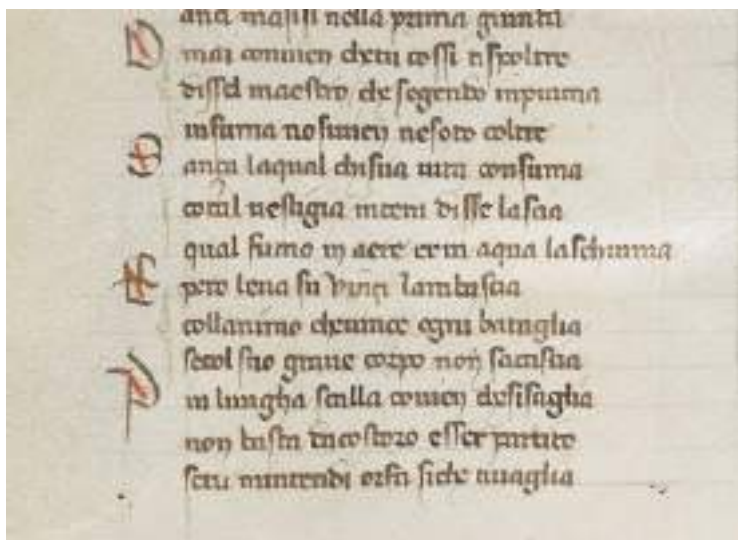 anci masisi nella prima giunta
O mai conuien chetu cossi tispoltre
dissel maestro che segendo inpiuma
infama nosiuien nesoto coltre
S ança laqual chisua uita consuma
cotal uestigia interra di sse lascia
qual fumo in aere et in aqua laschiuma
E pero leua su vinci lambascia
collanimo cheuince ogni bataglia
secol suo graue corpo non sacascia
P iu lungha scalla conuien chesisaglia
non basta dacostoro esser partito
setu mintendi orfa siche tiuaglia